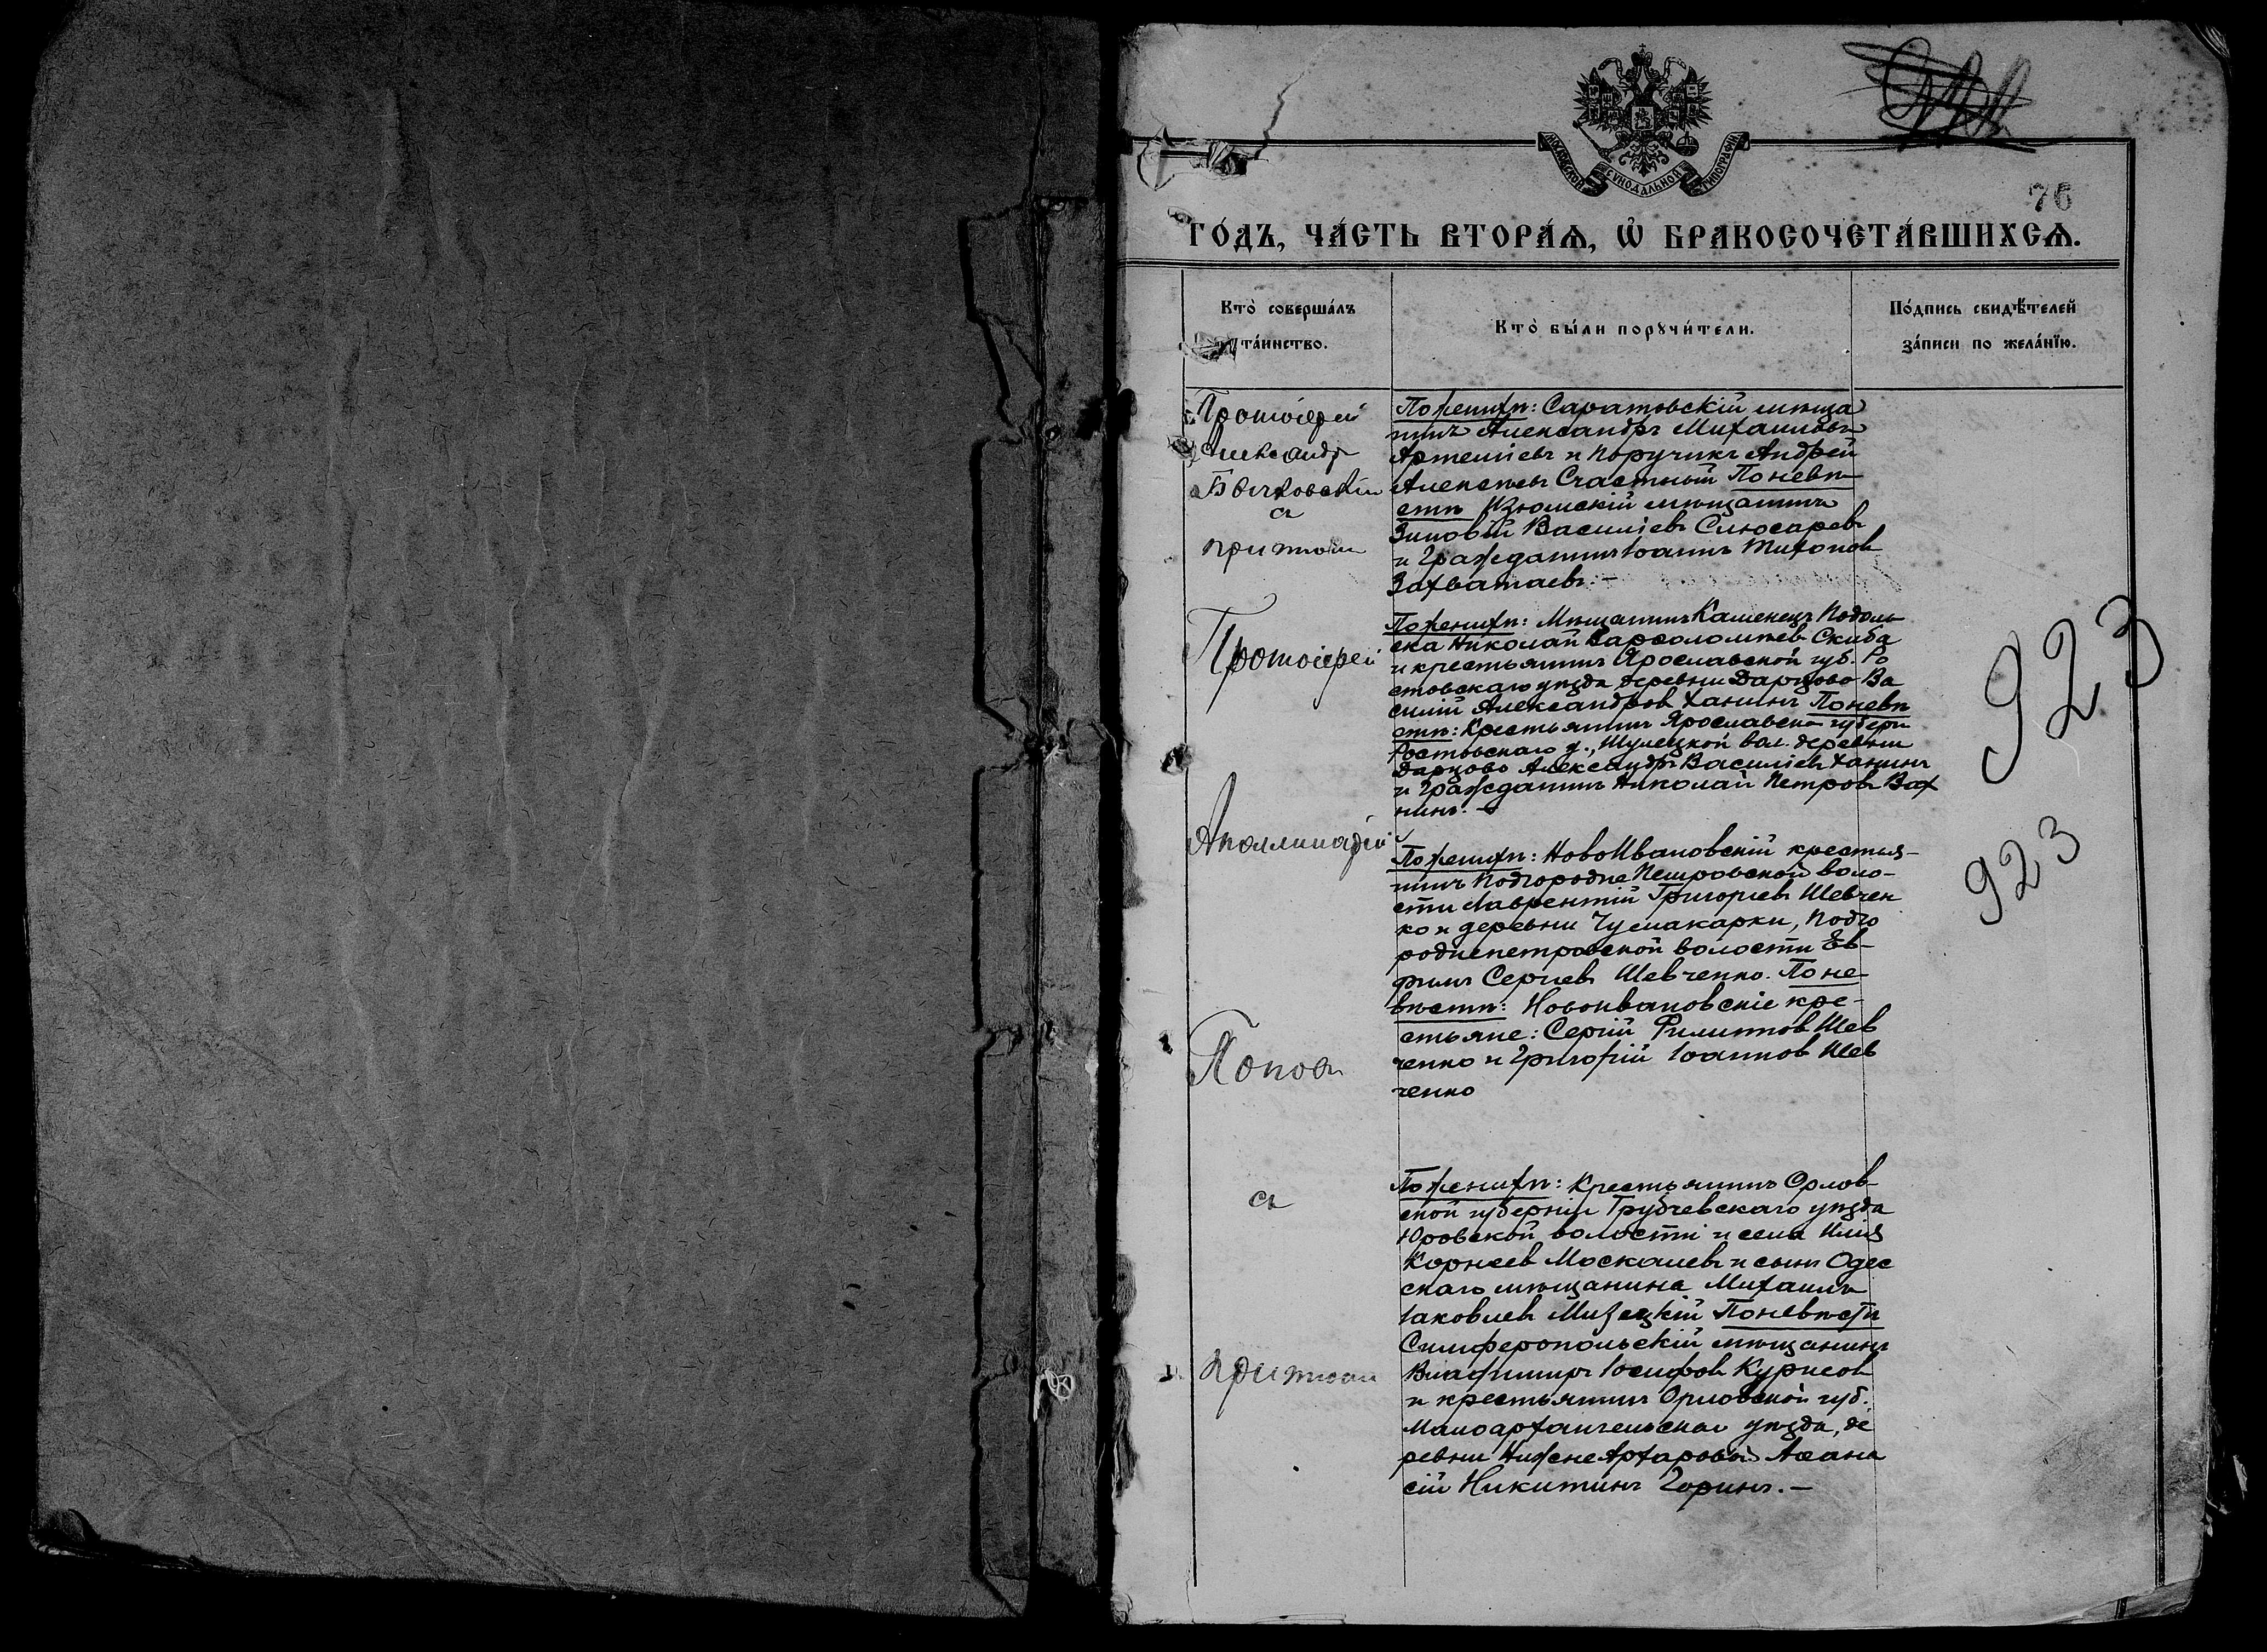 МОСКОВСКОЙ СѴНОДАЛЬНОЙ ТИПОГРАФІИ
76
ГО́ДЪ, ЧА́СТЬ ВТОРА́Ѧ, Ѿ БРАКОСОЧЕТА́ВШИХСѦ.
Кто̀ соверша́лъ
та́инство.
Кто̀ бы́ли порꙋчи́тели.
По́дпись свидѣ́телей
за́писи по жела́нїю.
Протоіерей
Александръ
съ
причтомъ
Протоіерей
Аполлинарій
Поповъ
съ
причтомъ
По женихѣ: Саратовскій мѣща
нинъ Александръ Михаиловъ
Артеміевъ и поручикъ Андрей
Алексѣевъ Счастный По невѣ
стѣ Изюмскій мѣщанинъ
Зиновій Василіевъ Слюсаревъ
и гражданинъ Іоаннъ Тихонов
Захватаевъ. —
По женихѣ: Мѣщанинъ Каменецъ Подоль
ска Николай Варѳоломѣев Скиба
и крестьянинъ Ярославской губ. Ро
стовскаго уѣзда деревни Дарцово Ва
силій Александров Ханинъ По невѣ
стѣ: Крестьянинъ Ярославской губерн
Ростовскаго у., Шулецкой вол. деревни
Дарцово Александръ Василіевъ Ханинъ
и гражданинъ Николай Петровъ Вах
нинъ. —
По женихѣ: НовоИвановскій крестья-
нинъ Подгородне Петровской воло-
сти Лаврентій Григоріевъ Шевчен
ко и деревни Чумакарки, Подго
роднепетровской волости Ев-
фимъ Сергіевъ Шевченко. По не
вѣстѣ: Новоивановскіе кре-
стьяне: Сергій Филиппов Шев
ченко и Григорій Іоаннов Шев
ченко
По женихѣ: Крестьянинъ Орлов-
ской губерніи Трубчевскаго уѣзда
Юровской волости и села Илія
Корнеев Москалевъ и сынъ Одес
скаго мѣщанина Михаилъ
Іаковлевъ Мизецкій По невѣстѣ
Симферопольскій мѣщанинъ
Владимиръ Іосифов Курисов
и крестьянинъ Орловской губ.
Малоархангельскаго уѣзда, де
ревни Нижне Архаровой Аѳана
сій Никитинъ Горинъ. —
923
923